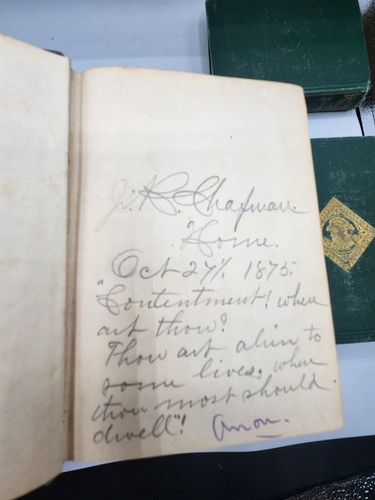 J. R. Chapman.
Home.
Oct 27/, 1875.
"Contentment! where
art thou?
Thou art alien to
some lives, where
thou most should
dwell"! Anon.